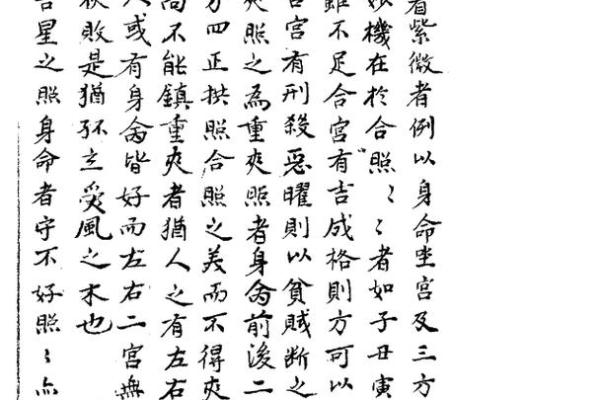 紫微者例以身命坐宮及三方
機在於合照〻〻者如子丑寅
雖不足合宮有吉成格則方可以
宮有刑殺惡曜則以貧賤断之
夾照之為重夾照者身命前後二
方四正拱照合照之美而不得夾
尚不能鎮重夾者猶人之有左右
人或有身命皆好而左右二宮無
敗是猶孤立受風之木也
吉星之照身命者守不好照〻亦